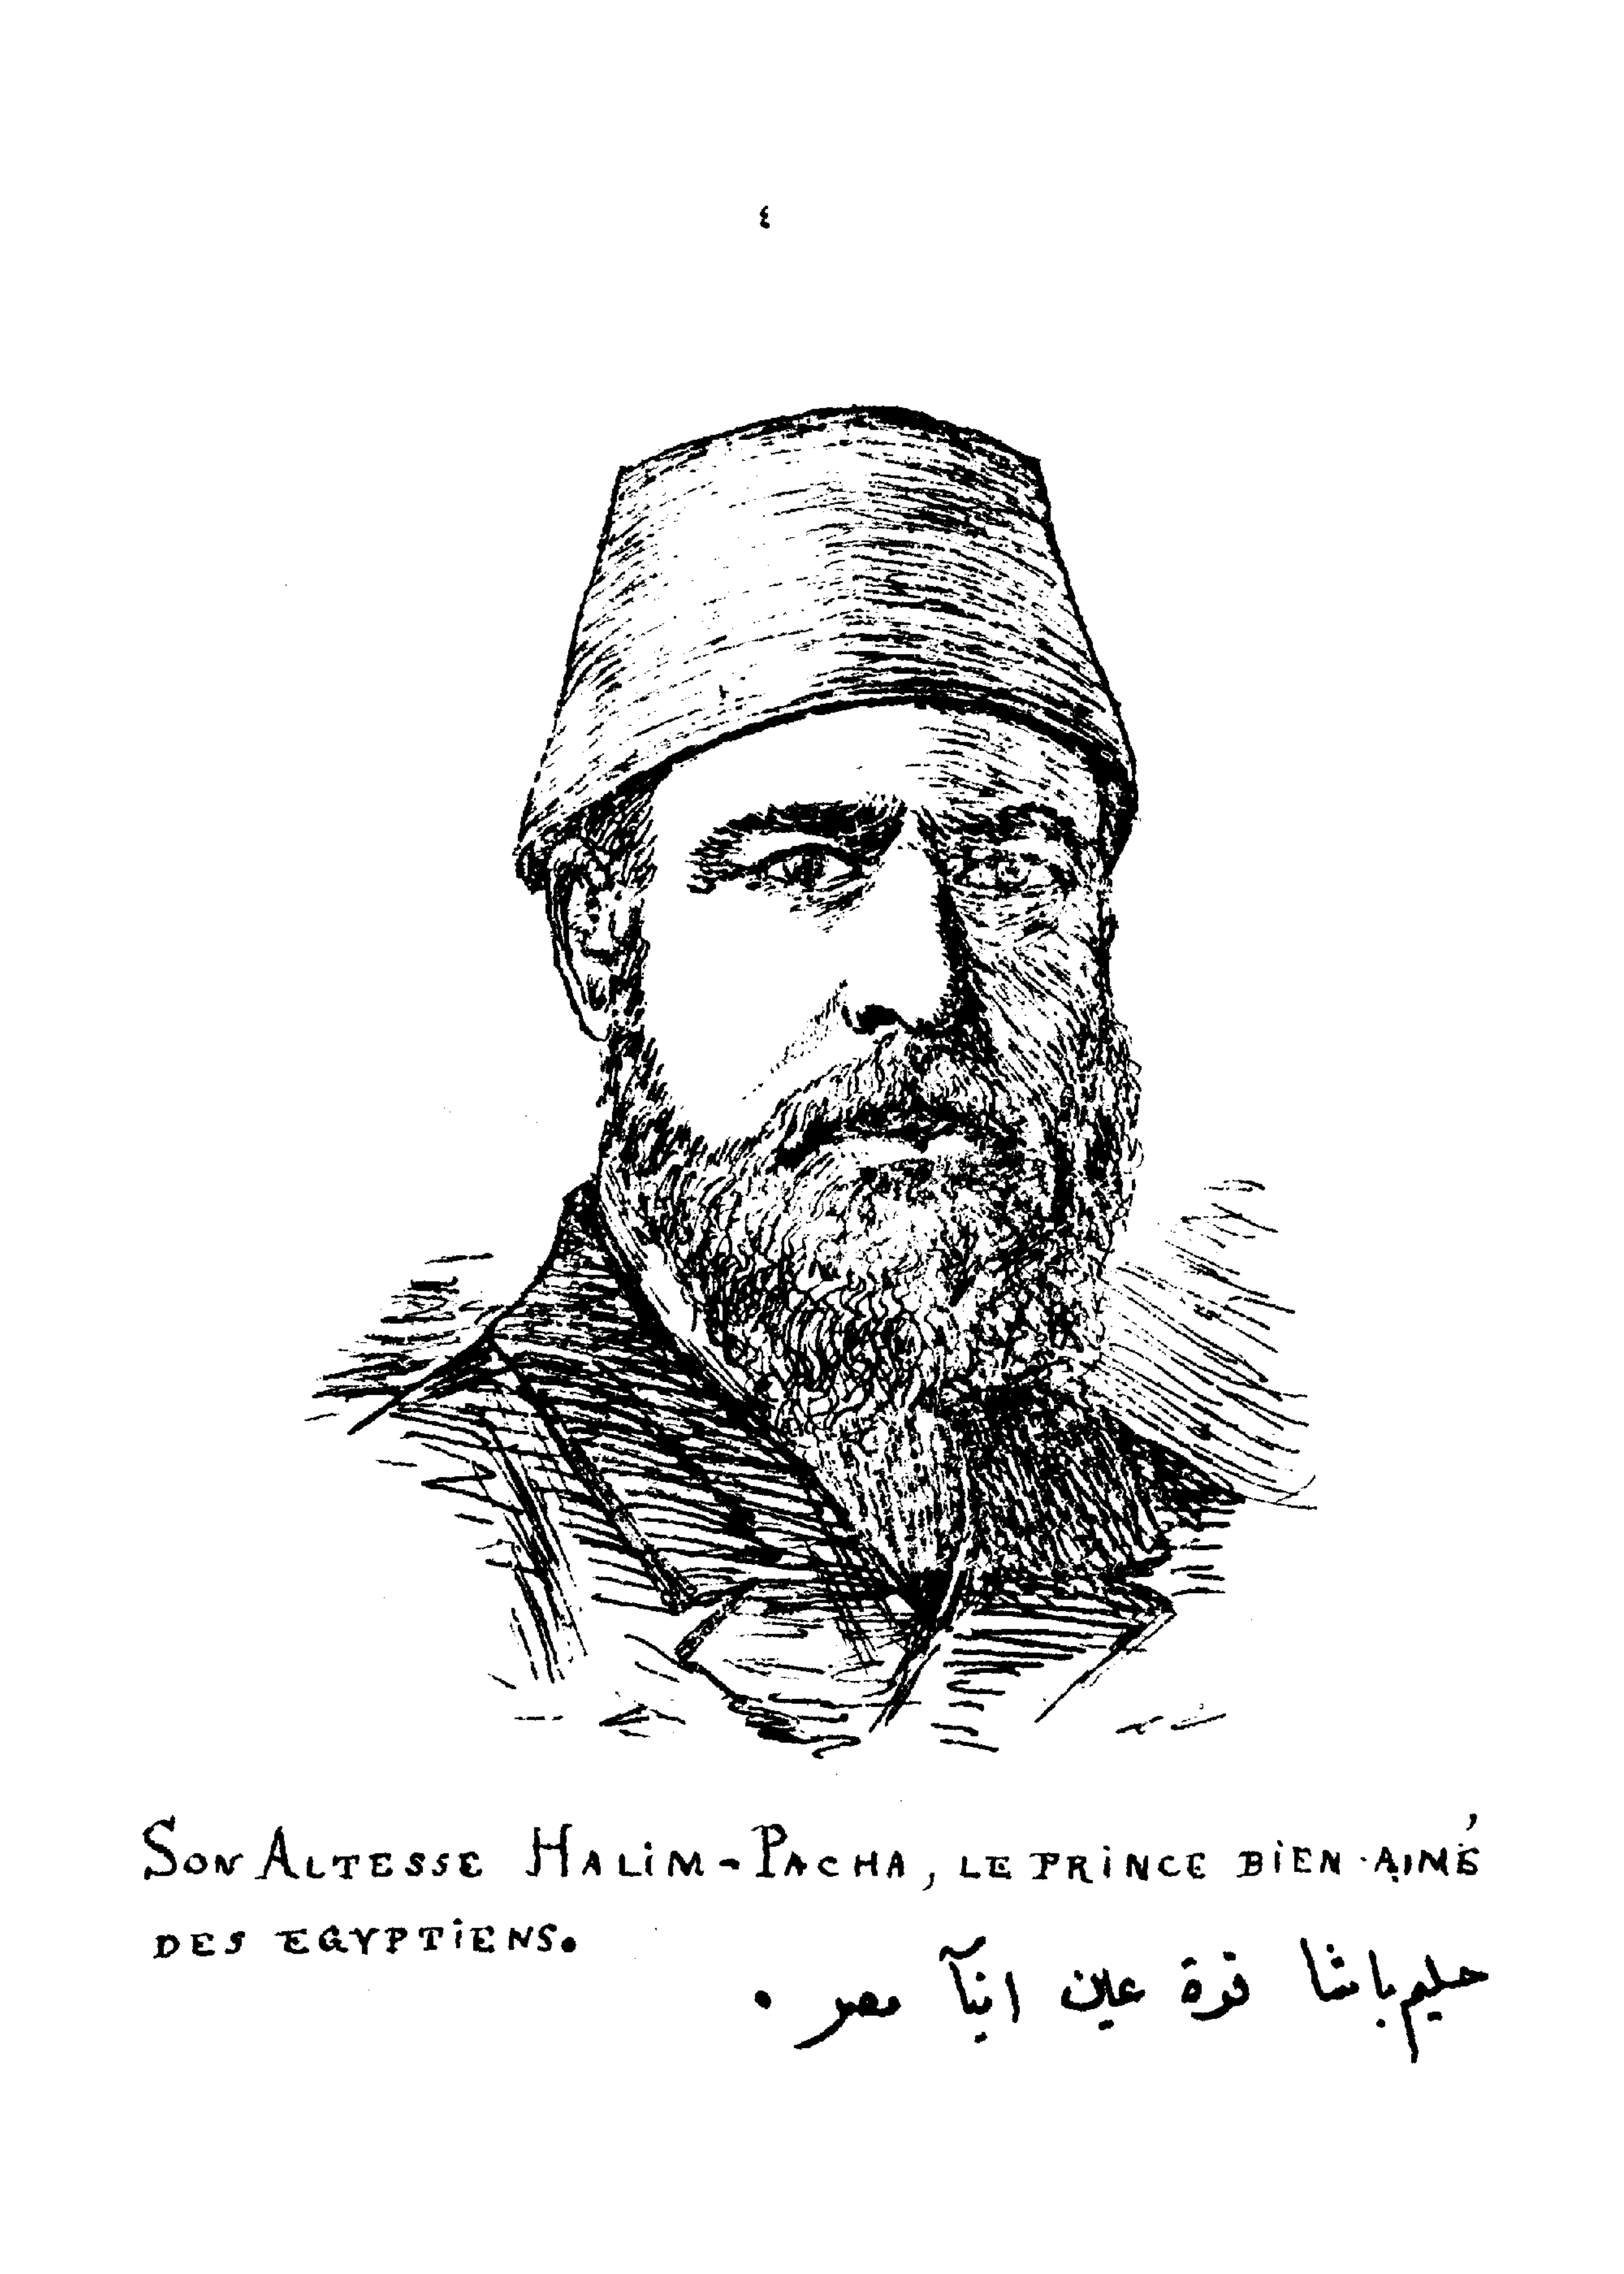 ٤
SON ALTESSE HALIM-PACHA, LE PRINCE BIEN-AIMÉ
DES EGYPTIENS.
حليم باشا قرة عين ابنآ مصر .